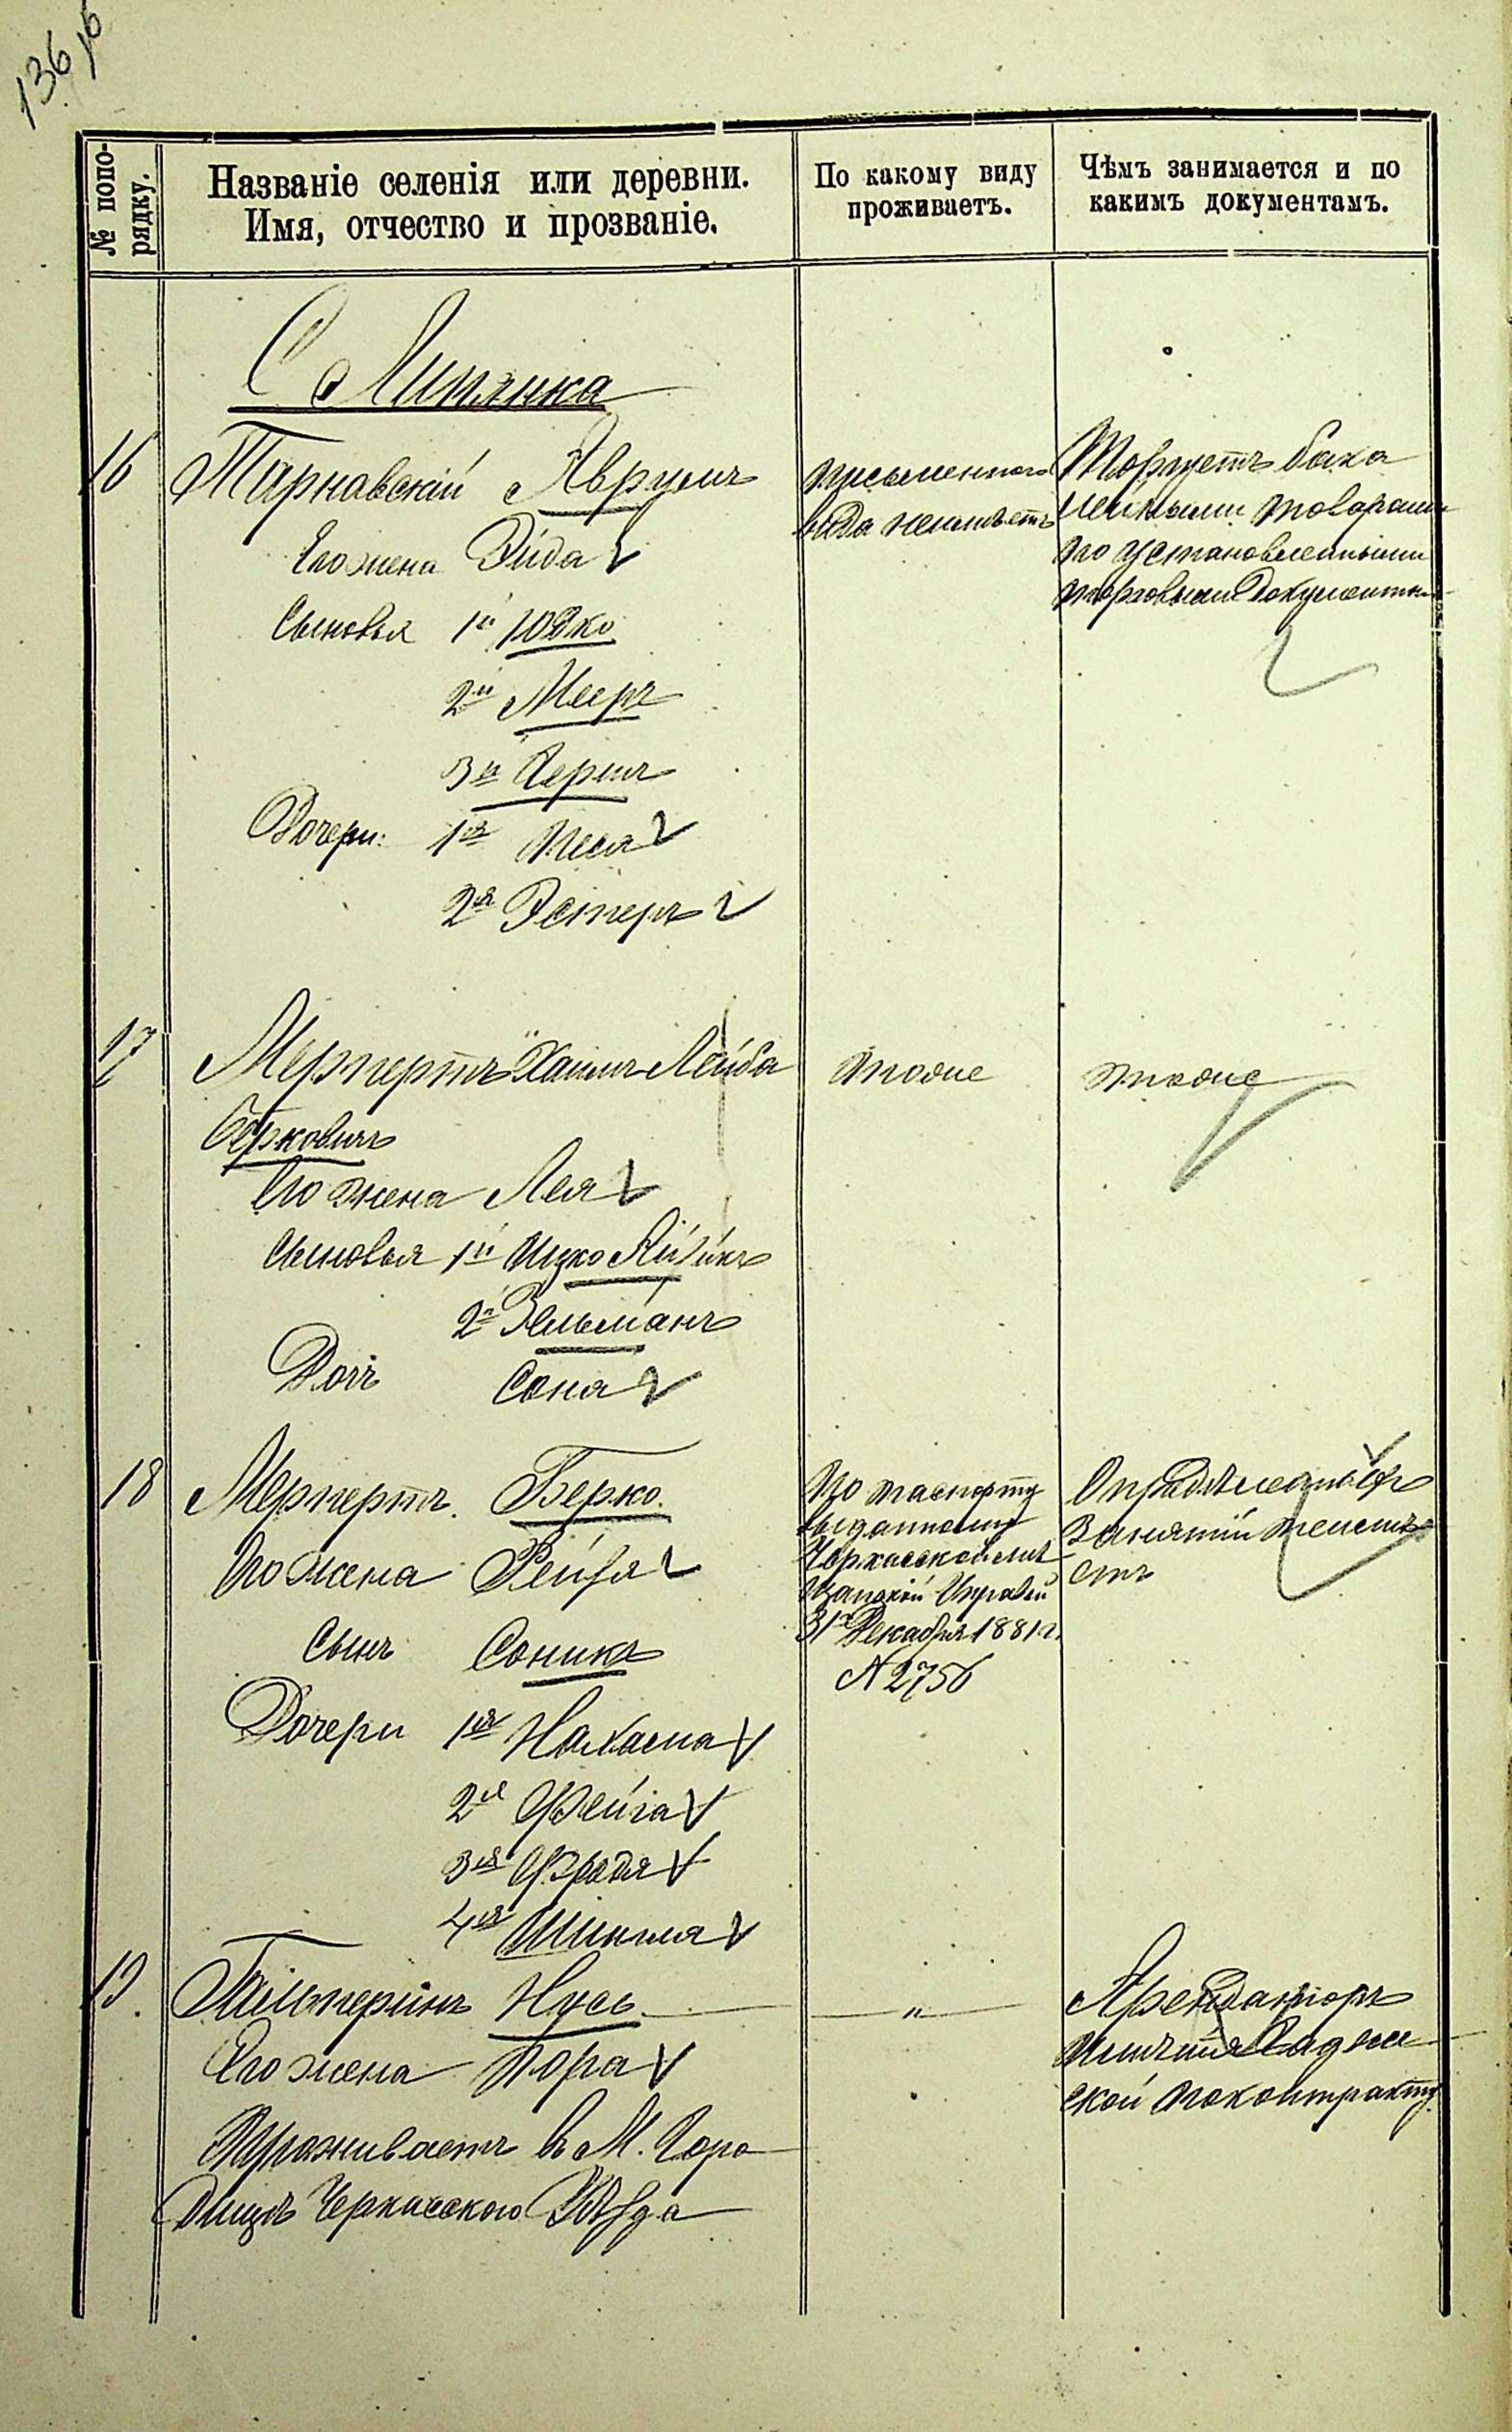 136, б
№ попо-
рядку.
Названіе селенія или деревни.
Имя, отчество и прозваніе.
По какому виду
проживаетъ.
Чѣмъ занимается и по
какимъ документамъ.
С Липянка
16
Тарнавскій Аврумъ
Его жена Эйда
Сыновья 1й Юдко
2й Мееръ
3й Герш
Дочери: 1я Песя
2я Эстеръ
письменного
вида неимѣетъ
Торгуетъ бака
лейными товарами
по установленнымъ
торговымъ документам
17
Мерпертъ Хаимъ Лейба
Берковичъ
Его жена Лея
Сыновья 1й Ицко Айзикъ
2й Зельманъ
Дочь Соня
тоже
тоже
18
Мерпертъ Берко
Его жена Рейзя
Сынъ Соникъ
Дочери 1я Нахама
2я Фейга
3я Фрадя
4я
По паспорту
выданному
Черкаской мѣ
щанской Управой
31 Декабря 1881 г.
№ 2756
Опредѣленныхъ
занятій неимѣ
етъ
19.
Гальперинъ Нусь
Его жена Дора
Проживаетъ въ М. Горо
дищѣ Черкасскаго Уѣзда
"
Арендаторъ
имѣнія
ской поконтракту